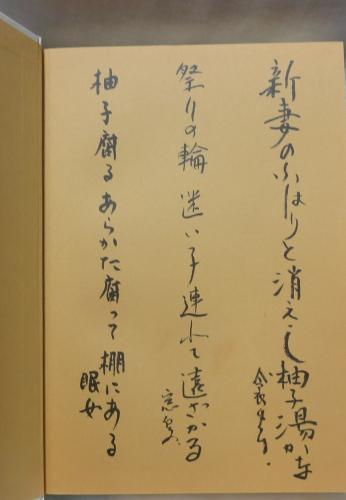 新妻のふはりと消えし柚子湯かな
祭りの輪迷い子連れて遠ざかる
柚子腐るあらかた腐って棚にある
眠女